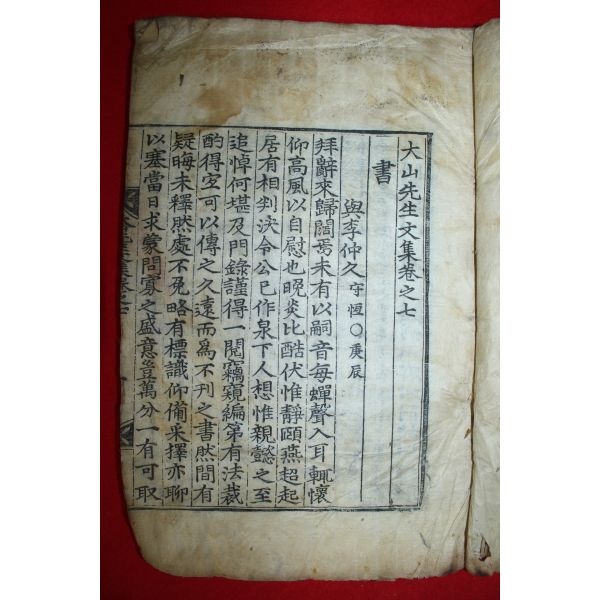 大山先生文集卷之七
書
與李仲久 守恒○庚辰
拜辭來歸闊焉未有以嗣音每蟬聲入耳輒懷
仰高風以自慰也晚炎比酷伏惟靜頤燕超起
居有相判決令公已作泉下人想惟親懿之至
追悼何堪及門錄謹得一閱竊窺編第有法裁
酌得宜可以傳之久遠而爲不刊之書然間有
疑晦未釋然處不免略有標識仰備采擇亦聊
以塞當日求蒙問寡之盛意豈萬分一有可取